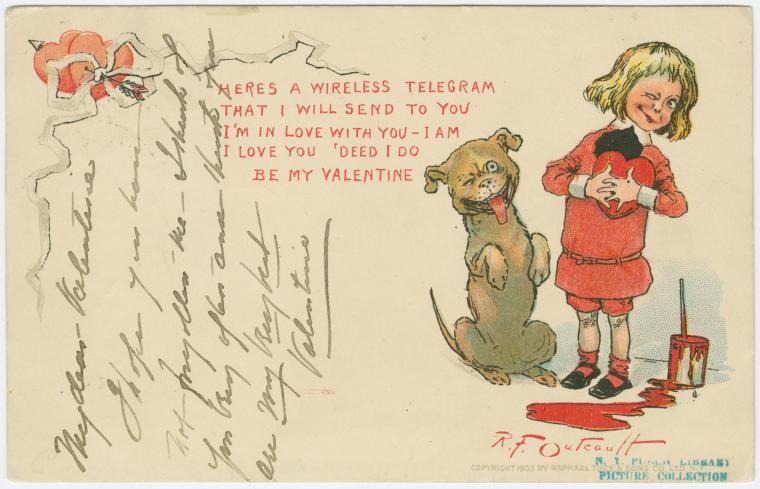 HERES A WIRELESS TELEGRAM
THAT I WILL SEND TO YOU
I'M IN LOVE WITH YOU - I AM
I LOVE YOU 'DEED I DO
BE MY VALENTINE
My dear Valentine
I hope you have
not forgotten me - I think of
you very often and
are my
Valentine
R.F. Outcault
COPYRIGHT 1903 BY RAPHAEL TUCK & SONS CO. LTD. N.Y.
N. Y. PUBLIC LIBRARY
PICTURE COLLECTION